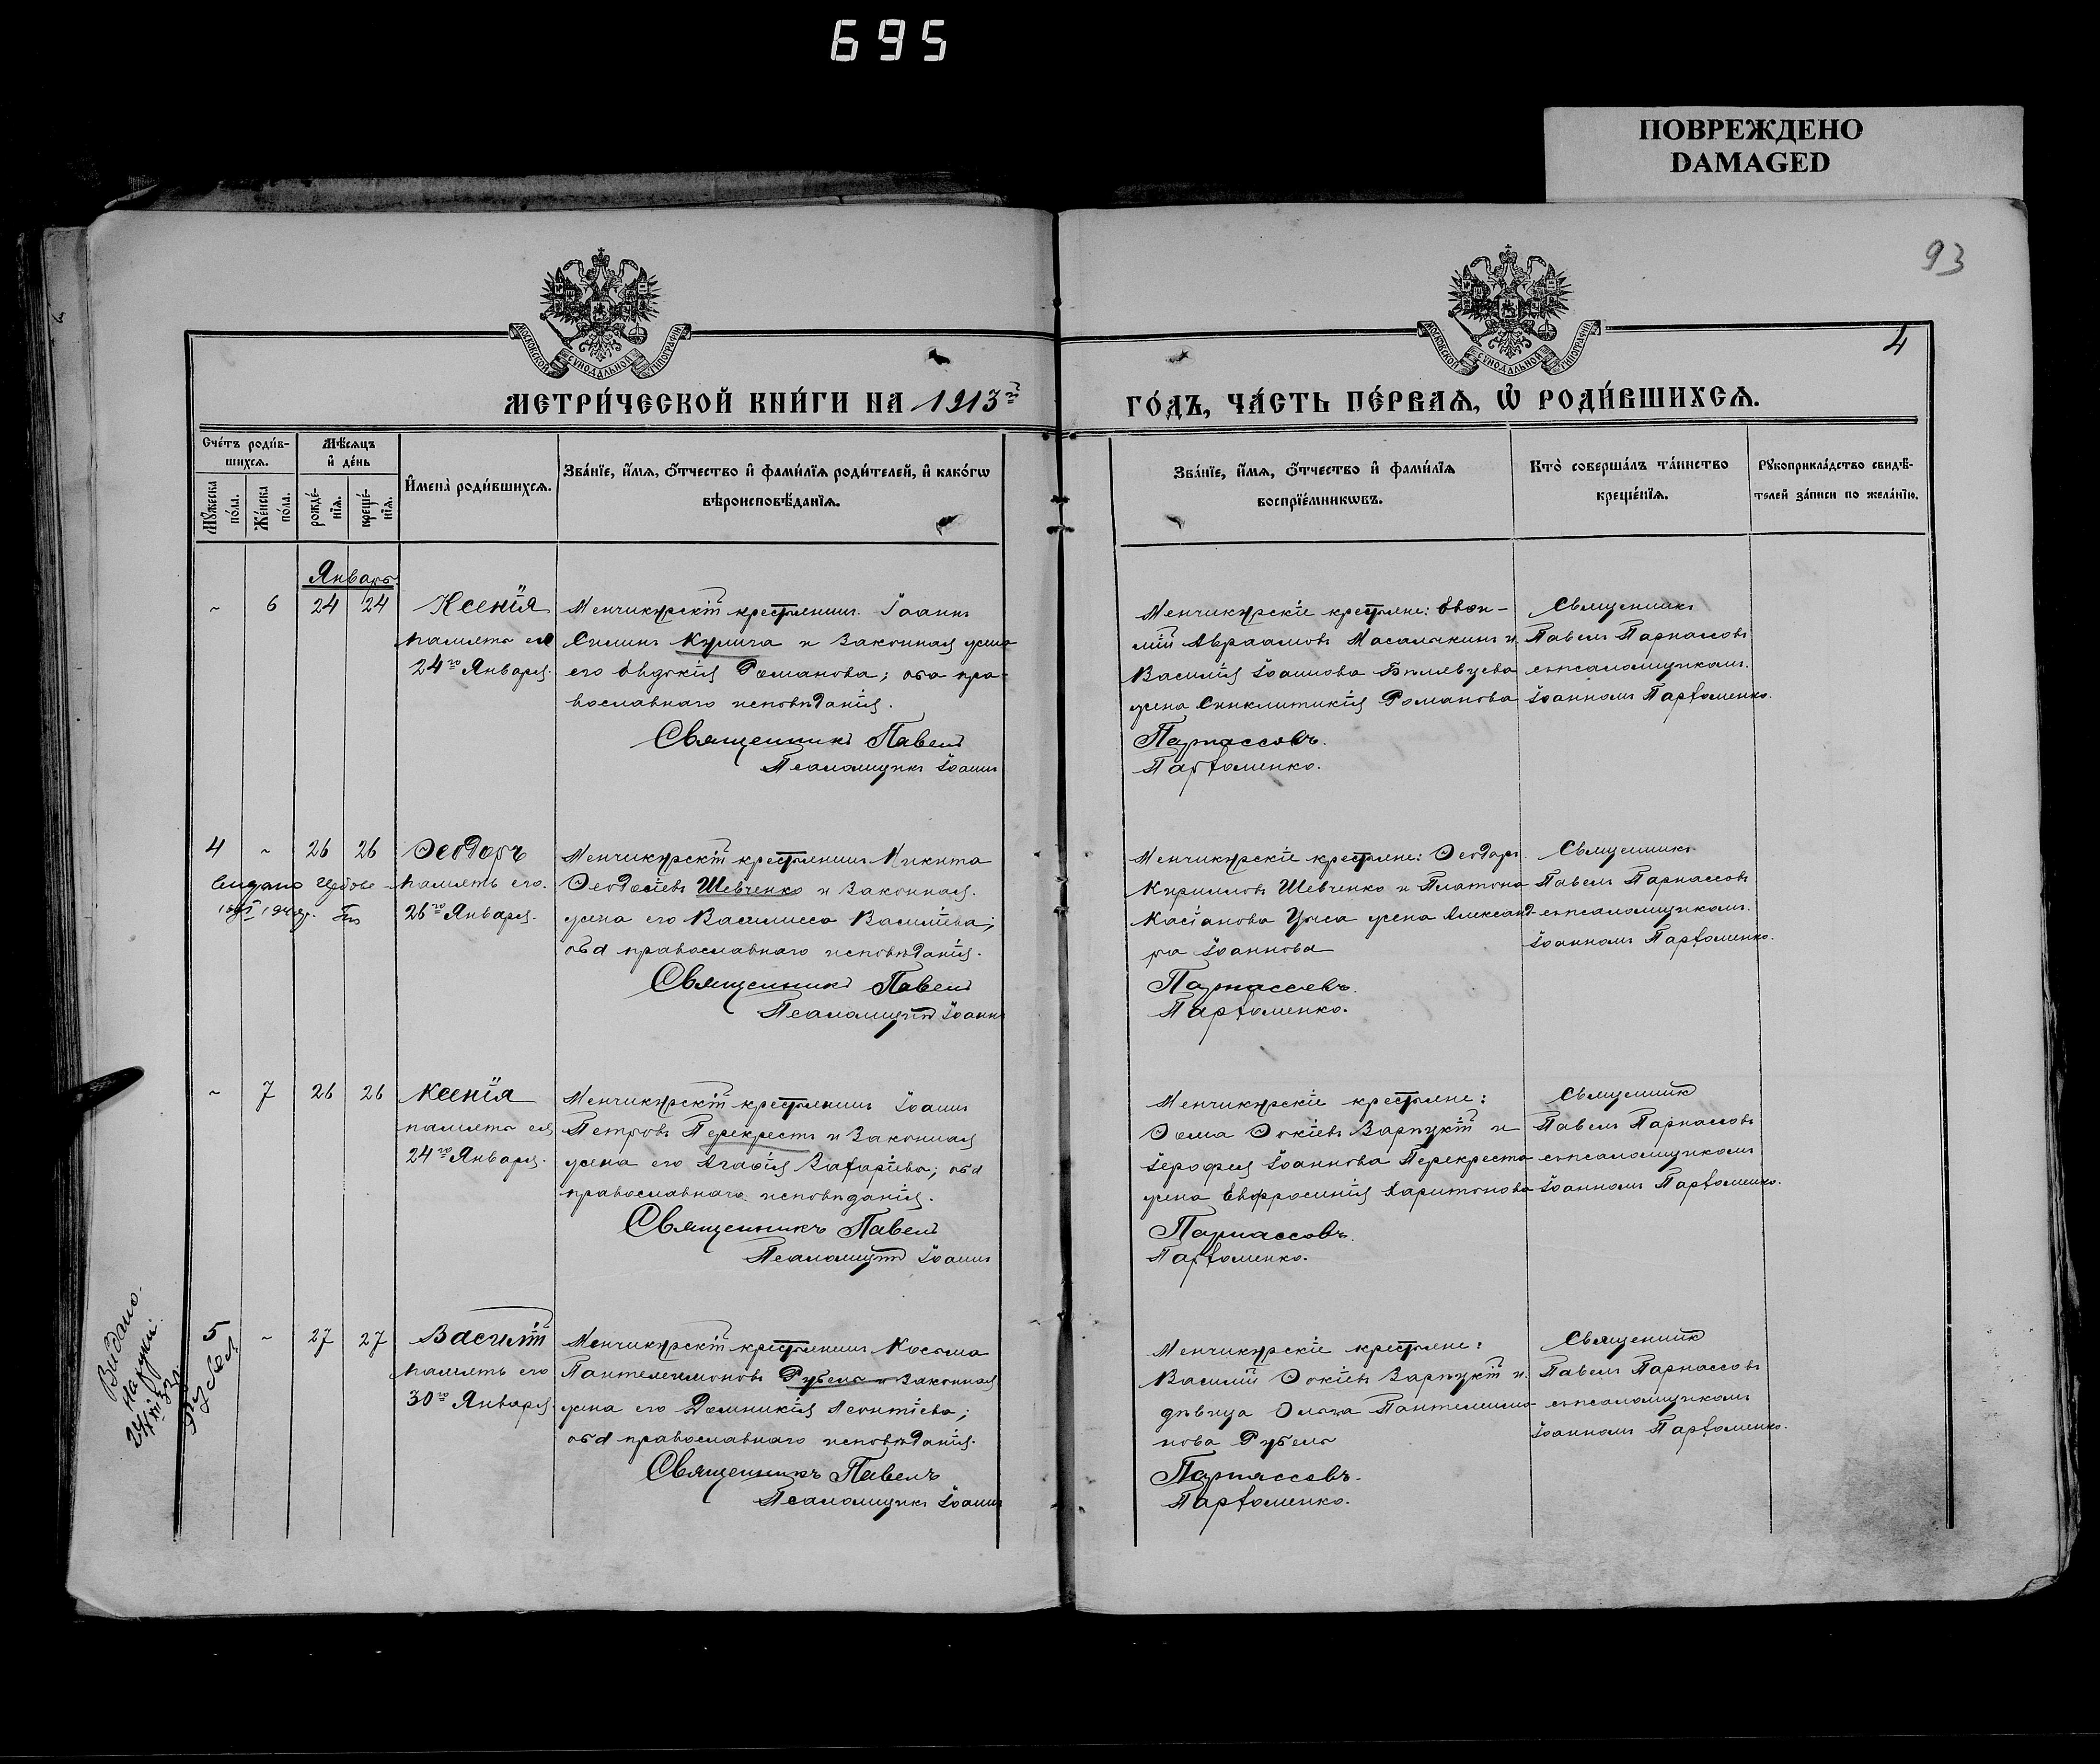 695
ПОВРЕЖДЕНО
DAMAGED
93
4
МОСКОВСКОЙ СѴНОДАЛЬНОЙ ТИПОГРАФІИ
МОСКОВСКОЙ СѴНОДАЛЬНОЙ ТИПОГРАФІИ
МЕТРИ́ЧЕСКОЙ КНИ́ГИ НА 1913 го
ГО́ДЪ, ЧА́СТЬ ПЕ́РВАѦ, Ѡ҆ РОДИ́ВШИХСѦ.
Сче́тъ роди́в-
шихсѧ.
Мѣ́сѧцъ
и҆ де́нь
Мꙋ́жеска по́ла.
Же́нска по́ла.
рожде́-
нїѧ.
креще́-
нїѧ.
И҆мена̀ роди́вшихсѧ.
Зва́нїе, и҆́мѧ, ѻ҆́тчество и҆ фами́лїѧ роди́телей, и҆ како́гѡ
вѣроисповѣ́данїѧ.
Зва́нїе, и҆́мѧ, ѻ҆́тчество и҆ фами́лїѧ
воспрїе́мникѡвъ.
Кто̀ соверша́лъ та́инство
креще́нїѧ.
Рꙋкоприкла́дство свидѣ́-
телей за́писи по жела́нїю.
Январь
~ 6 24 24 Ксенія
память ея
24го Января.
Менчикурскій крестьянинъ Іоаннъ
Силинъ Кулига и законная жена
его Евдокія Романова; оба пра-
вославнаго исповѣданія.
Священникъ Павелъ
Псаломщикъ Іоаннъ
Менчикурскіе крестьяне:
мій Авраамовъ и
Василія Іоаннова
жена Синклитикія Романова
Парнассовъ.
Парфоменко.
Священникъ
Павелъ Парнассовъ
съ псаломщикомъ
Іоанномъ Парфоменко.
4 ~ 26 26 Ѳеодоръ
память его
26го Января.
Менчикурскій крестьянинъ Никита
Ѳеодосіевъ Шевченко и законная
жена его Василисса Василіева;
оба православнаго исповѣданія.
Священникъ Павелъ
Псаломщикъ Іоаннъ
Менчикурскіе крестьяне: Ѳеодоръ
Кирилловъ Шевченко и Платона
Касіанова жена Александ-
ра Іоаннова
Парнассовъ.
Парфоменко.
Священникъ
Павелъ Парнассовъ
съ псаломщикомъ
Іоанномъ Парфоменко.
~ 7 26 26 Ксенія
память ея
24го Января.
Менчикурскій крестьянинъ Іоаннъ
Петровъ Перекрестъ и законная
жена его Агафія Захаріева; оба
православнаго исповѣданія.
Священникъ Павелъ
Псаломщикъ Іоаннъ
Менчикурскіе крестьяне:
Ѳома Ѳокіевъ Заруцкій и
Іерофея Іоаннова Перекреста
жена Евфросинія Харитонова
Парнассовъ.
Парфоменко.
Священникъ
Павелъ Парнассовъ
съ псаломщикомъ
Іоанномъ Парфоменко.
Видано
5 ~ 27 27 Василій
память его
30го Января
Менчикурскій крестьянинъ Косьма
Пантелеимоновъ Рубель и законная
жена его Домникія Леонтіева;
оба православнаго исповѣданія.
Священникъ Павелъ
Псаломщикъ Іоаннъ
Менчикурскіе крестьяне:
Василій Ѳокіевъ Заруцкій и
дѣвица Ольга Пантелеимо-
нова Рубель
Парнассовъ.
Парфоменко.
Священникъ
Павелъ Парнассовъ
съ псаломщикомъ
Іоанномъ Парфоменко.